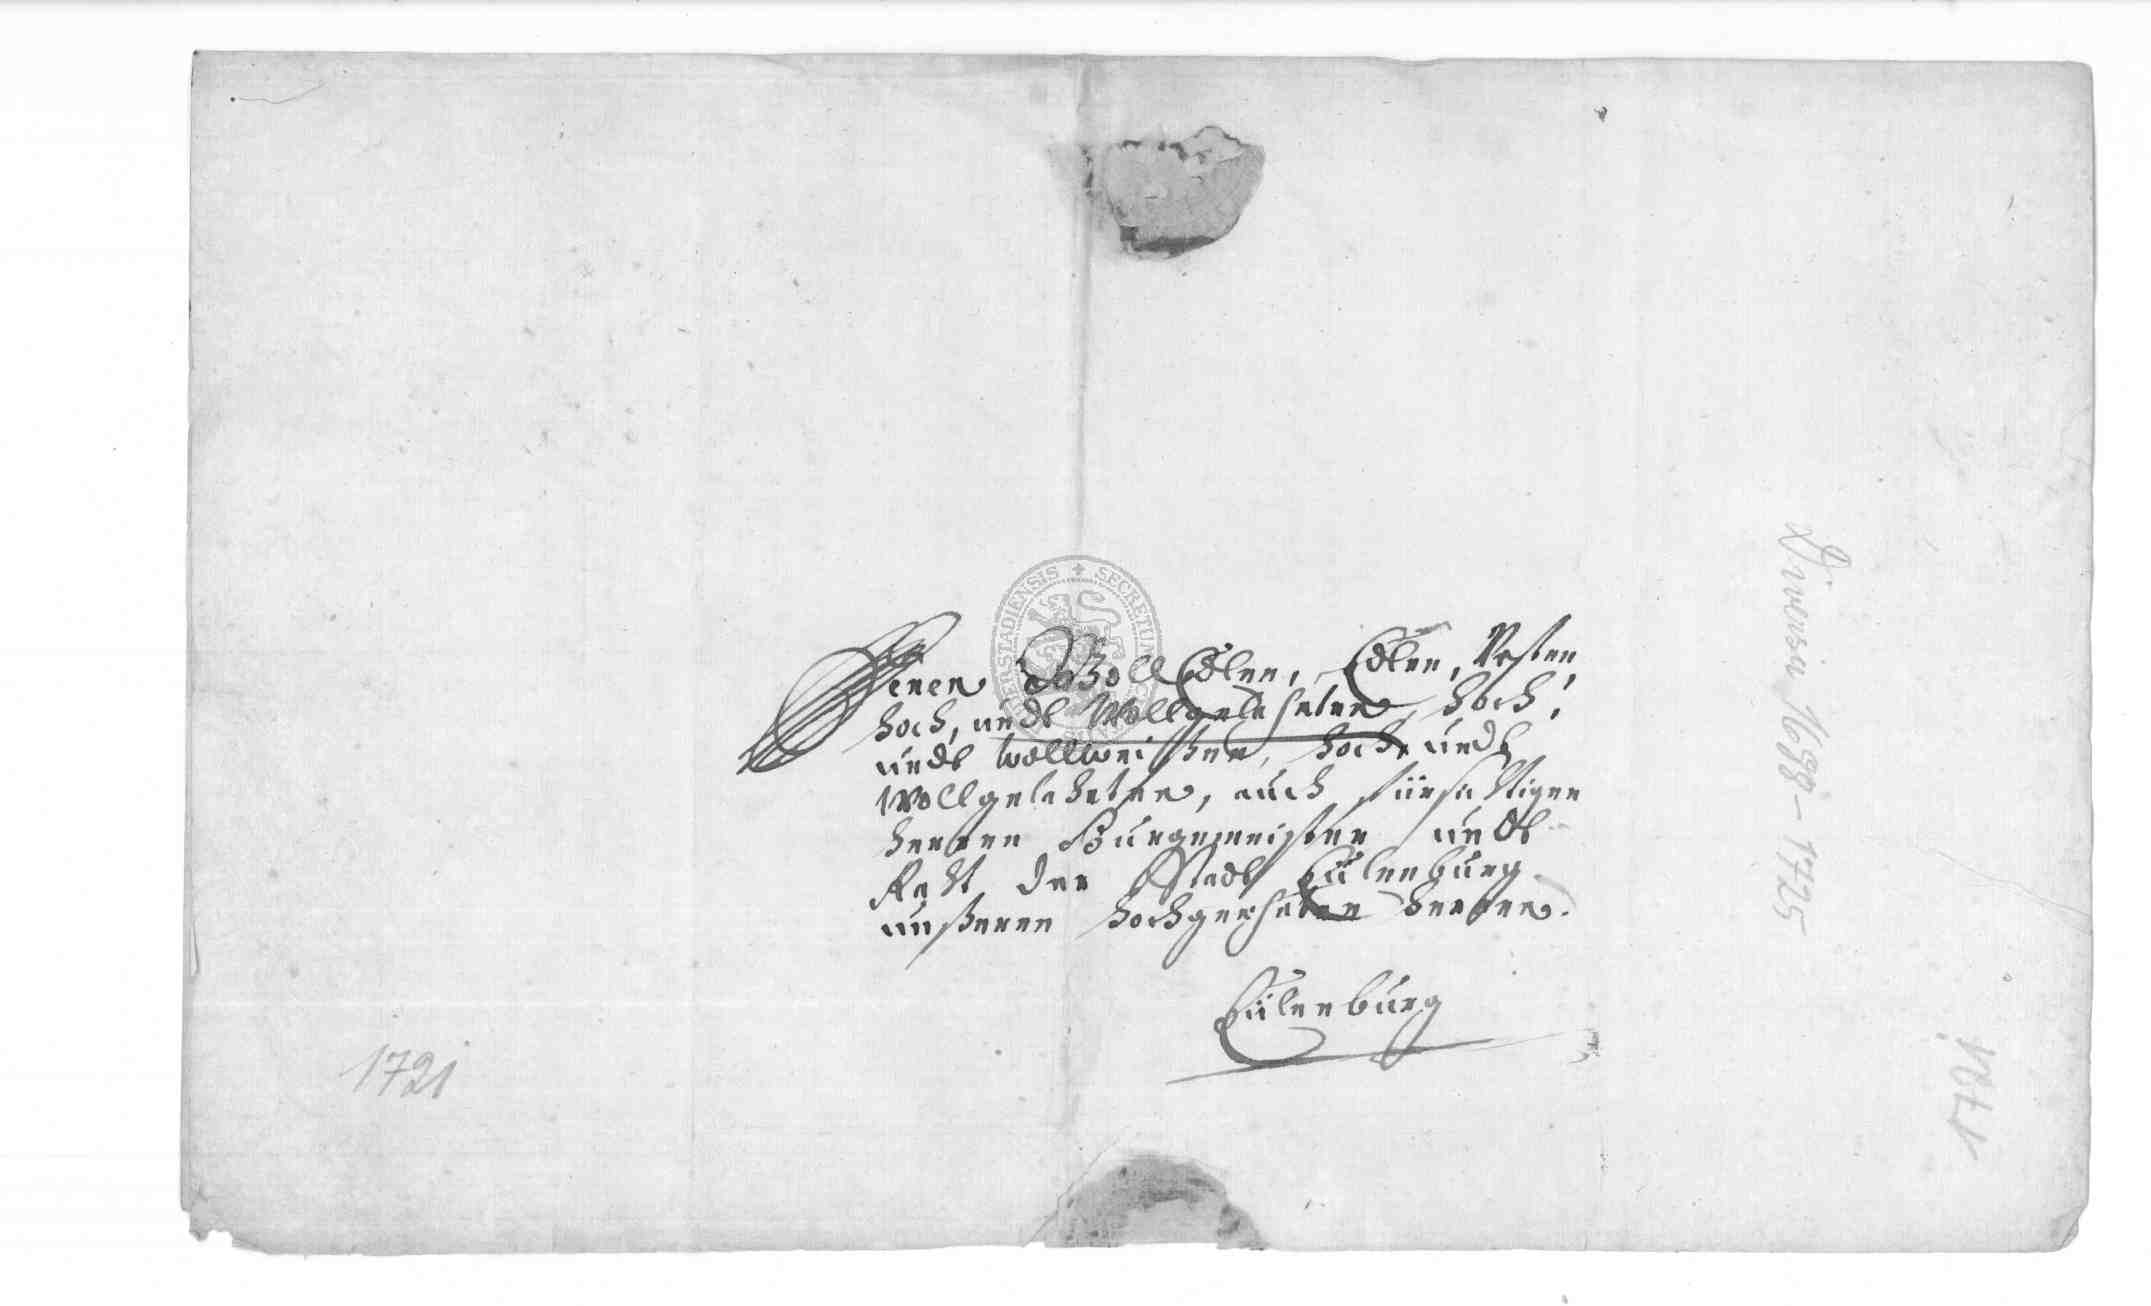 Denen WollEdlen, Edlen, Vesten,
hoch, undt Wollgelahrten, hoch,
undt wollweißen, hoch undt
Wollgelahrten, auch fürsichtigen
herren Burgemeister undt
Raht der Stadt Eülenburg
unßeren hochgeehrten herren.
Eülenburg
1721
Diversa 1698-1725
1721
SECRETUM